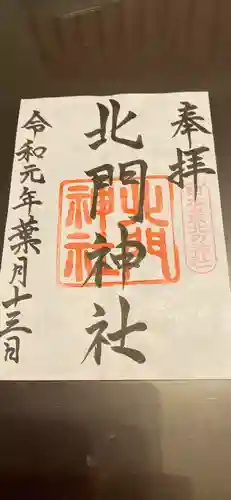 奉拝
北門神社
北門神社
令和元年葉月十三日